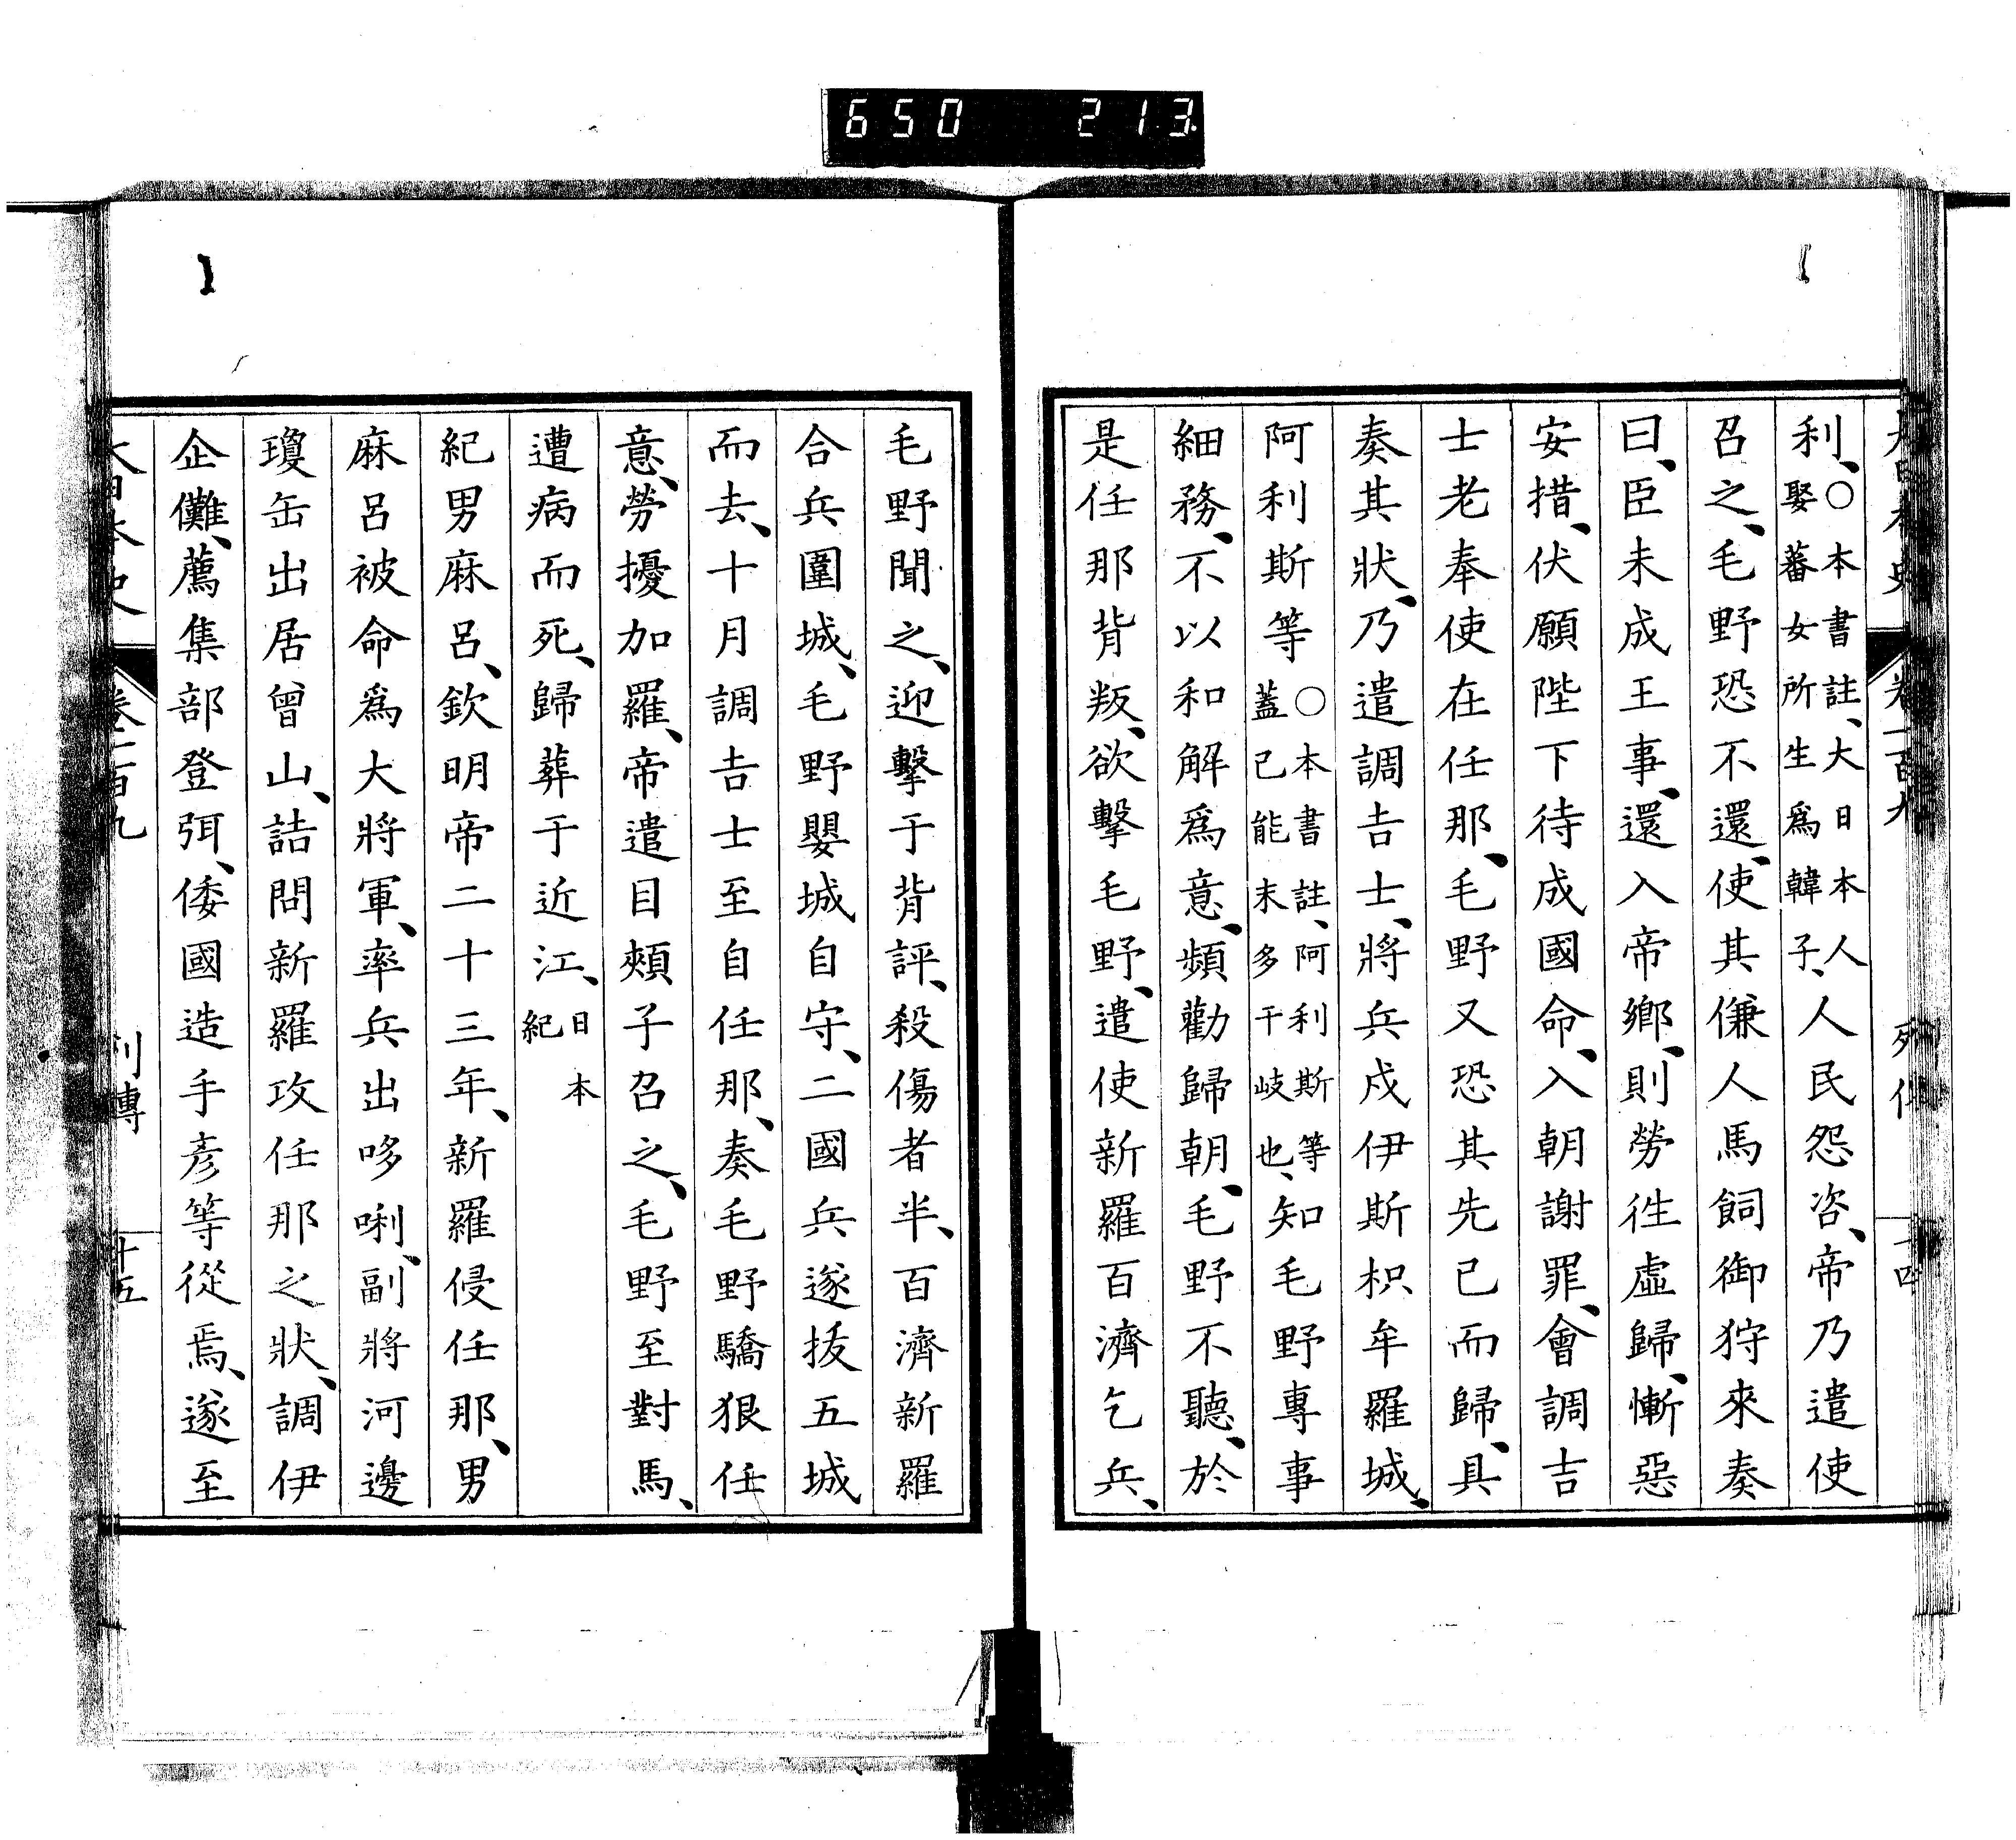 650 213
利、○本書註、大日本人娶蕃女所生爲韓子、人民怨咨、帝乃遣使
召之、毛野恐不還、使其傔人馬飼御狩來奏
曰、臣未成王事、還入帝鄉、則勞徃虛歸、慚惡
安措、伏願陛下待成國命、入朝謝罪、會調吉
士老奉使在任那、毛野又恐其先已而歸、具
奏其狀、乃遣調吉士、將兵戍伊斯枳牟羅城、
阿利斯等○本書註、阿利斯等蓋已能末多干岐也、知毛野專事
細務、不以和解爲意、頻勸歸朝、毛野不聽、於
是任那背叛、欲擊毛野、遣使新羅百濟乞兵、
毛野聞之、迎擊于背評、殺傷者半、百濟新羅
合兵圍城、毛野嬰城自守、二國兵遂拔五城
而去、十月調吉士至自任那、奏毛野驕狠任
意、勞擾加羅、帝遣目頰子召之、毛野至對馬、
遭病而死、歸葬于近江、日本紀
紀男麻呂、欽明帝二十三年、新羅侵任那、男
麻呂被命爲大將軍、率兵出哆唎、副將河邊
瓊缶出居曾山、詰問新羅攻任那之狀、調伊
企儺、薦集部登弭、倭國造手彥等從焉、遂至
大日本史 卷一百九 列傳 十五